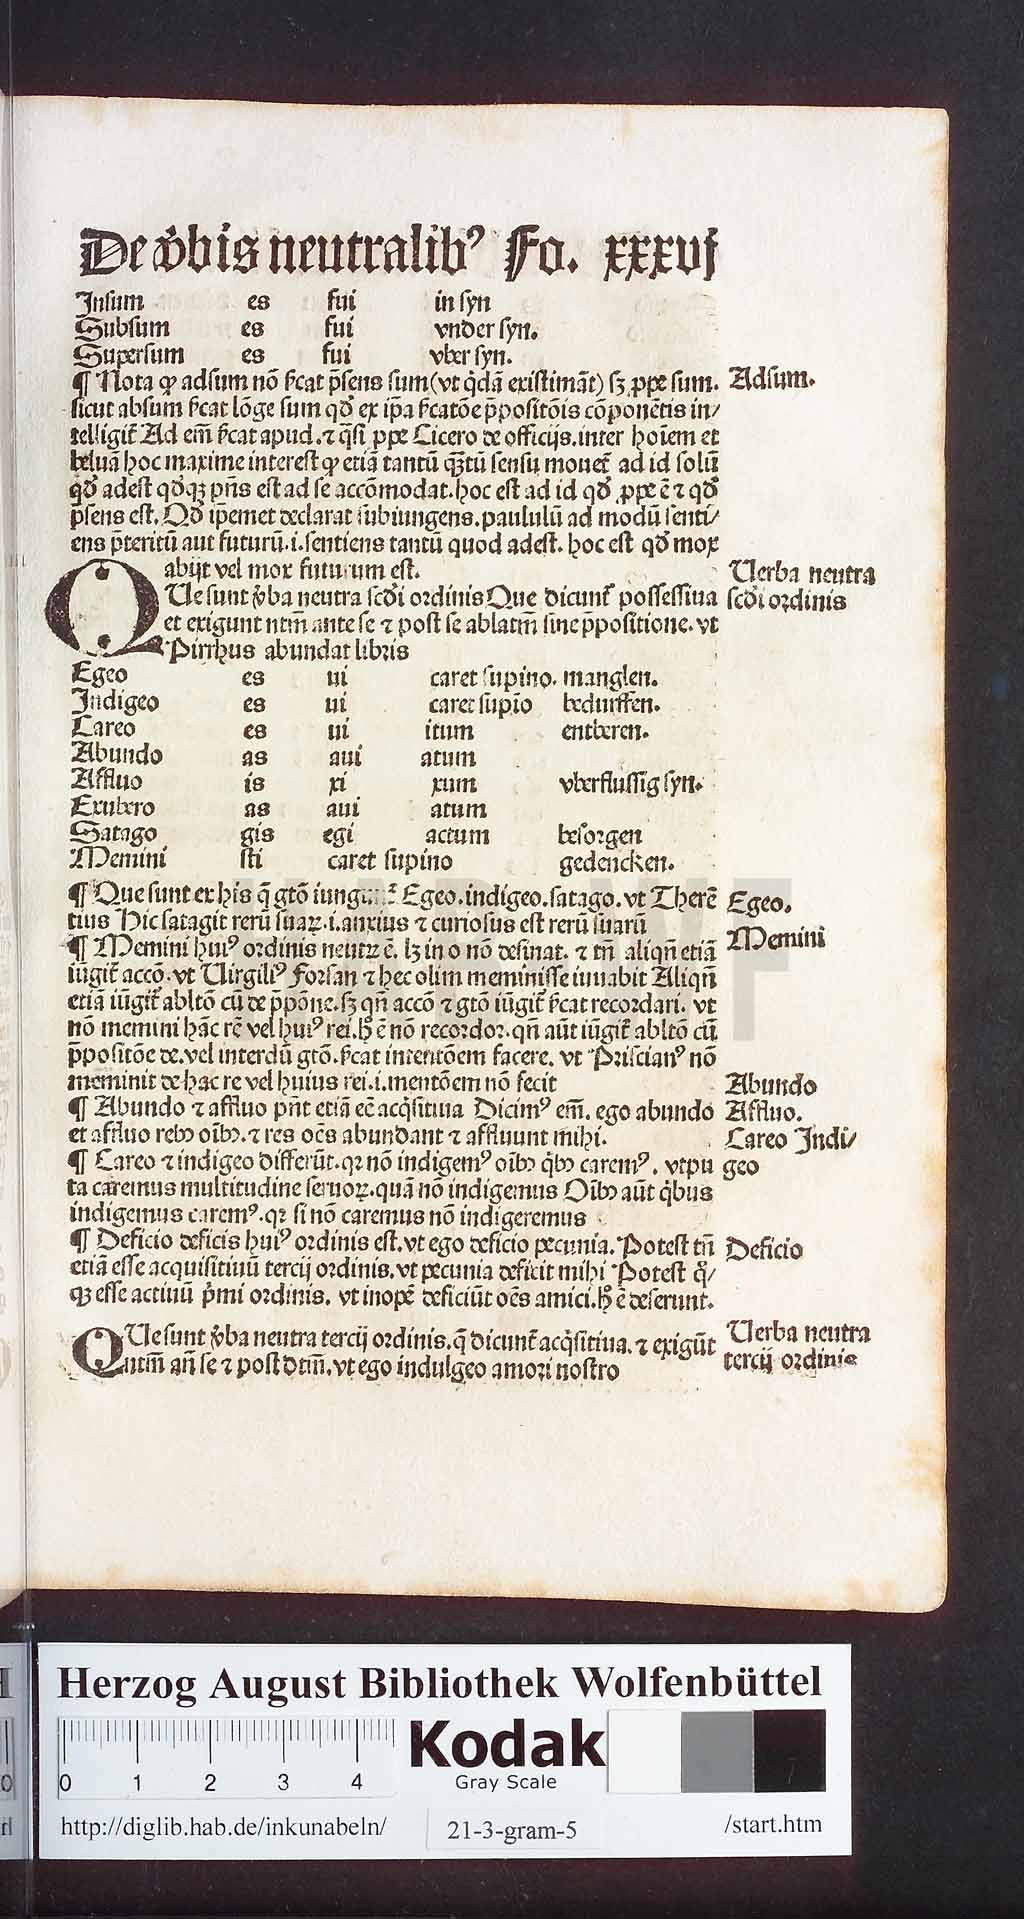 De v̄bis neutralibꝰ Fo. xxxvj
Insum es fui in syn
Subsum es fui vnder syn.
Supersum es fui vber syn.
¶ Nota ꝙ adsum nō s̄cat p̄sens sum (vt q̇dā existimāt) sꝫ ꝓpe sum. Adsum.
sicut absum s̄cat lōge sum qđ ex ip̄a s̄catōe p̄positōis cōponētis in/
telligit᷑ Ad em̄ s̄cat apud. ⁊ q̄si ꝓpe Cicero de officijs. inter hoīem et
beluā hoc maxime interest ꝙ etiā tantū qꝫtū sensu mouet᷑ ad id solū
qđ adest qđqꝫ pn̄s est ad se accōmodat. hoc est ad id qđ ꝓpe ē ⁊ qđ
p̄sens est. Qđ ip̄emet declarat subiungens. paululū ad modū senti/
ens p̄teritū aut futurū .i. sentiens tantū quod adest. hoc est qđ mox
abijt vel mox futurum est.
QUe sunt v̄ba neutra scđi ordinis Que dicunt᷑ possessiua Uerba neutra
et exigunt ntm̄ ante se ⁊ post se ablatm̄ sine p̄positione. vt scđi ordinis
Pirrhus abundat libris
Egeo es ui caret supino. manglen.
Indigeo es ui caret supīo bedurffen.
Careo es ui itum entberen.
Abundo as aui atum
Affluo is xi xum vberflussig syn.
Exubero as aui atum
Satago gis egi actum besorgen
Memini sti caret supino gedencken.
¶ Que sunt ex his q̄ gtō iungunt᷑ Egeo. indigeo. satago. vt Therē Egeo.
tius Hic satagit rerū suaꝝ .i. anxius ⁊ curiosus est rerū suarū
¶ Memini huiꝰ ordinis neutꝝ ē. lꝫ in o nō desinat. ⁊ tn̄ aliqn̄ etiā Memini
iūgit᷑ accō. vt Uirgiliꝰ Forsan ⁊ hec olim meminisse iuuabit Aliqn̄
etiā iūgit᷑ abltō cū de p̄pōne. sꝫ qn̄ accō ⁊ gtō iūgit᷑ s̄cat recordari. vt
nō memini hāc rē vel huiꝰ rei. hͦ ē nō recordor. qn̄ aūt iūgit᷑ abltō cū
p̄positōe de. vel interdū gtō. s̄cat mentōem facere. vt Priscianꝰ nō
meminit de hac re vel huius rei .i. mentōem nō fecit
¶ Abundo ⁊ affluo pn̄t etiā eē acq̇sitiua Dicimꝰ em̄. ego abundo Abundo Affluo.
et affluo rebꝫ oībꝫ. ⁊ res oēs abundant ⁊ affluunt mihi.
¶ Careo ⁊ indigeo differūt. qꝛ nō indigemꝰ oībꝫ q̇bꝫ caremꝰ. vtpu Careo Indi/geo
ta caremus multitudine seruoꝝ. quā nō indigemus Oībꝫ aūt q̇bus
indigemus caremꝰ. qꝛ si nō caremus nō indigeremus
¶ Deficio deficis huiꝰ ordinis est. vt ego deficio pecunia. Potest tn̄ Deficio
etiā esse acquisitiuū tercij ordinis. vt pecunia deficit mihi Potest qͦ/
qꝫ esse actiuū p̄mi ordinis. vt inopē deficiūt oēs amici. hͦ ē deserunt.
QUe sunt v̄ba neutra tercij ordinis. q̄ dicunt᷑ acq̇sitiua. ⁊ exigūt Uerba neutra
ntm̄ an̄ se ⁊ post dtm̄. vt ego indulgeo amori nostro tercij ordinis
Herzog August Bibliothek Wolfenbüttel
Kodak
Gray Scale
0 1 2 3 4
http://diglib.hab.de/inkunabeln/ 21-3-gram-5 /start.htm